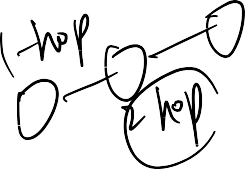 1-hop
2 hop